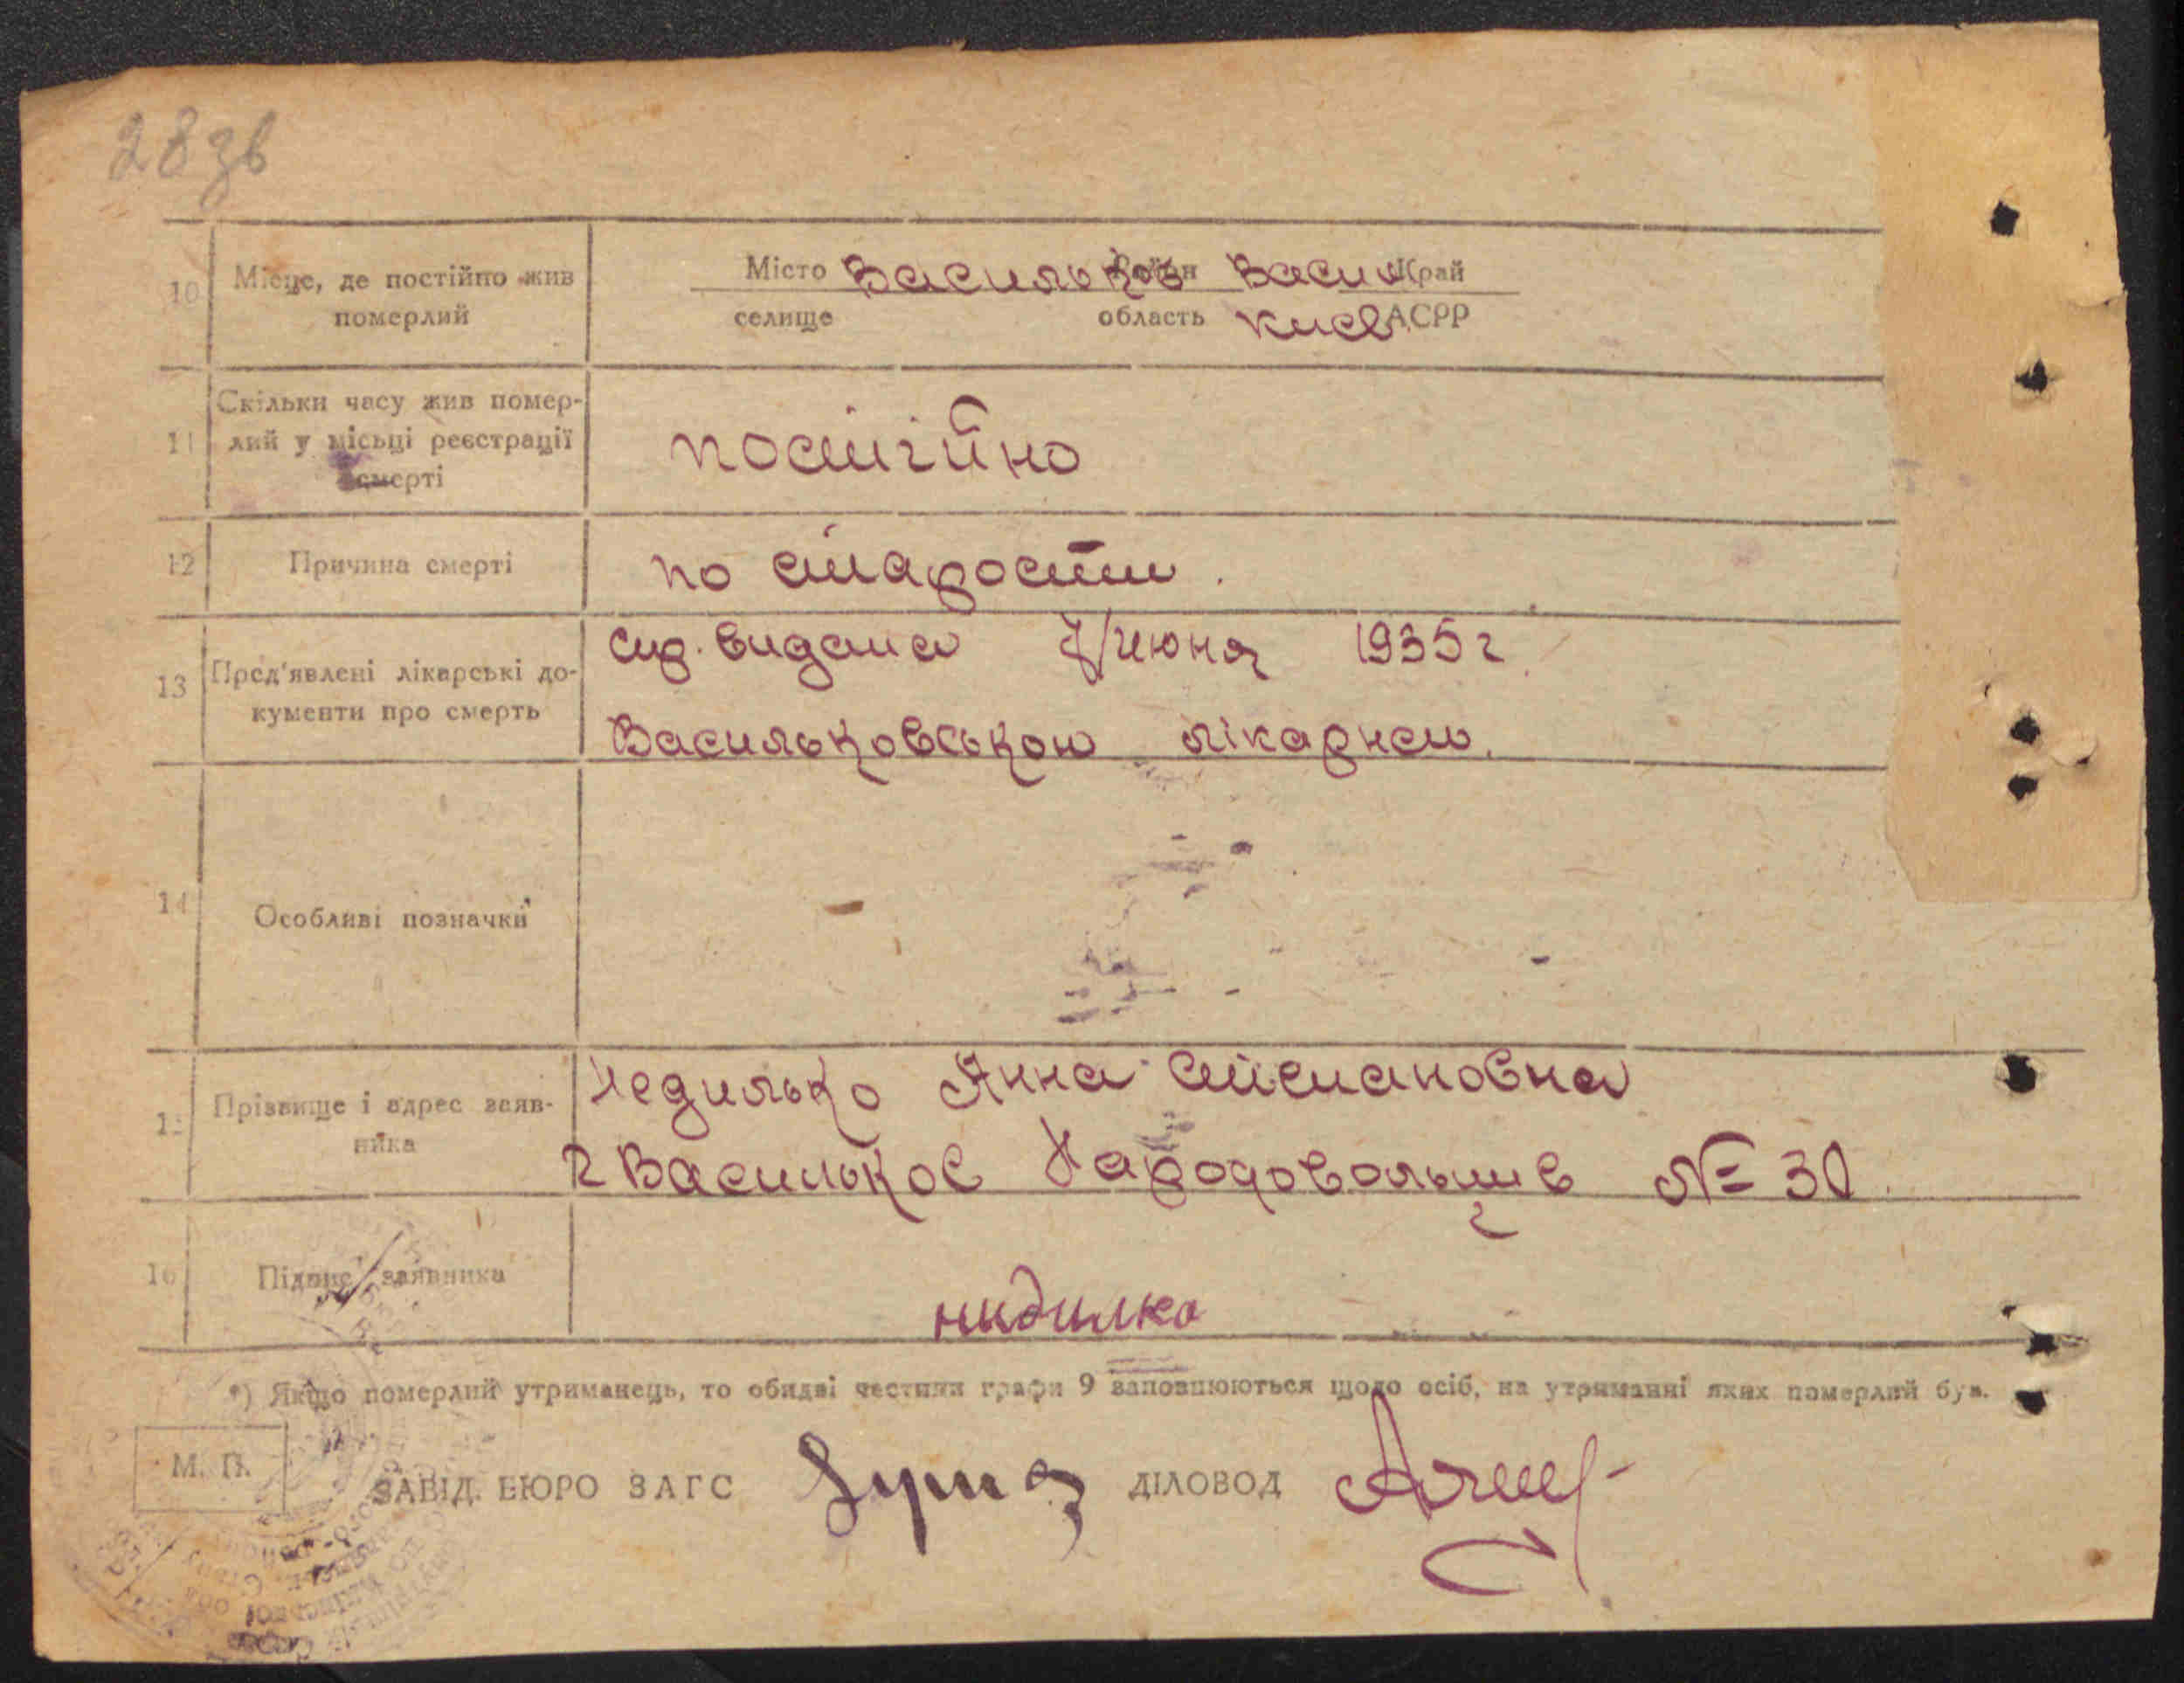 28 зв
10 Місце, де постійно жив померлий
Місто Васильков Район Васил Край
селище область Киев АСРР
11 Скільки часу жив помер-
лий у місьці реєстрації
смерті
постійно
12 Причина смерті
по старости.
13 Пред'явлені лікарські до-
кументи про смерть
видана 7/июня 1935 г.
Васильковською лікарнею.
14 Особливі позначки
15 Прізвище і адрес заяв-
ника
Недилько Анна Стемановна
г Васильков Народовольцив № 30.
16 Підпис заявника
нидилко
*) Якщо померлий утриманець, то обидві частини графи 9 заповнюються щодо осіб, на утриманні яких померлий був.
М. П.
ЗАВІД. БЮРО ЗАГС ДІЛОВОД